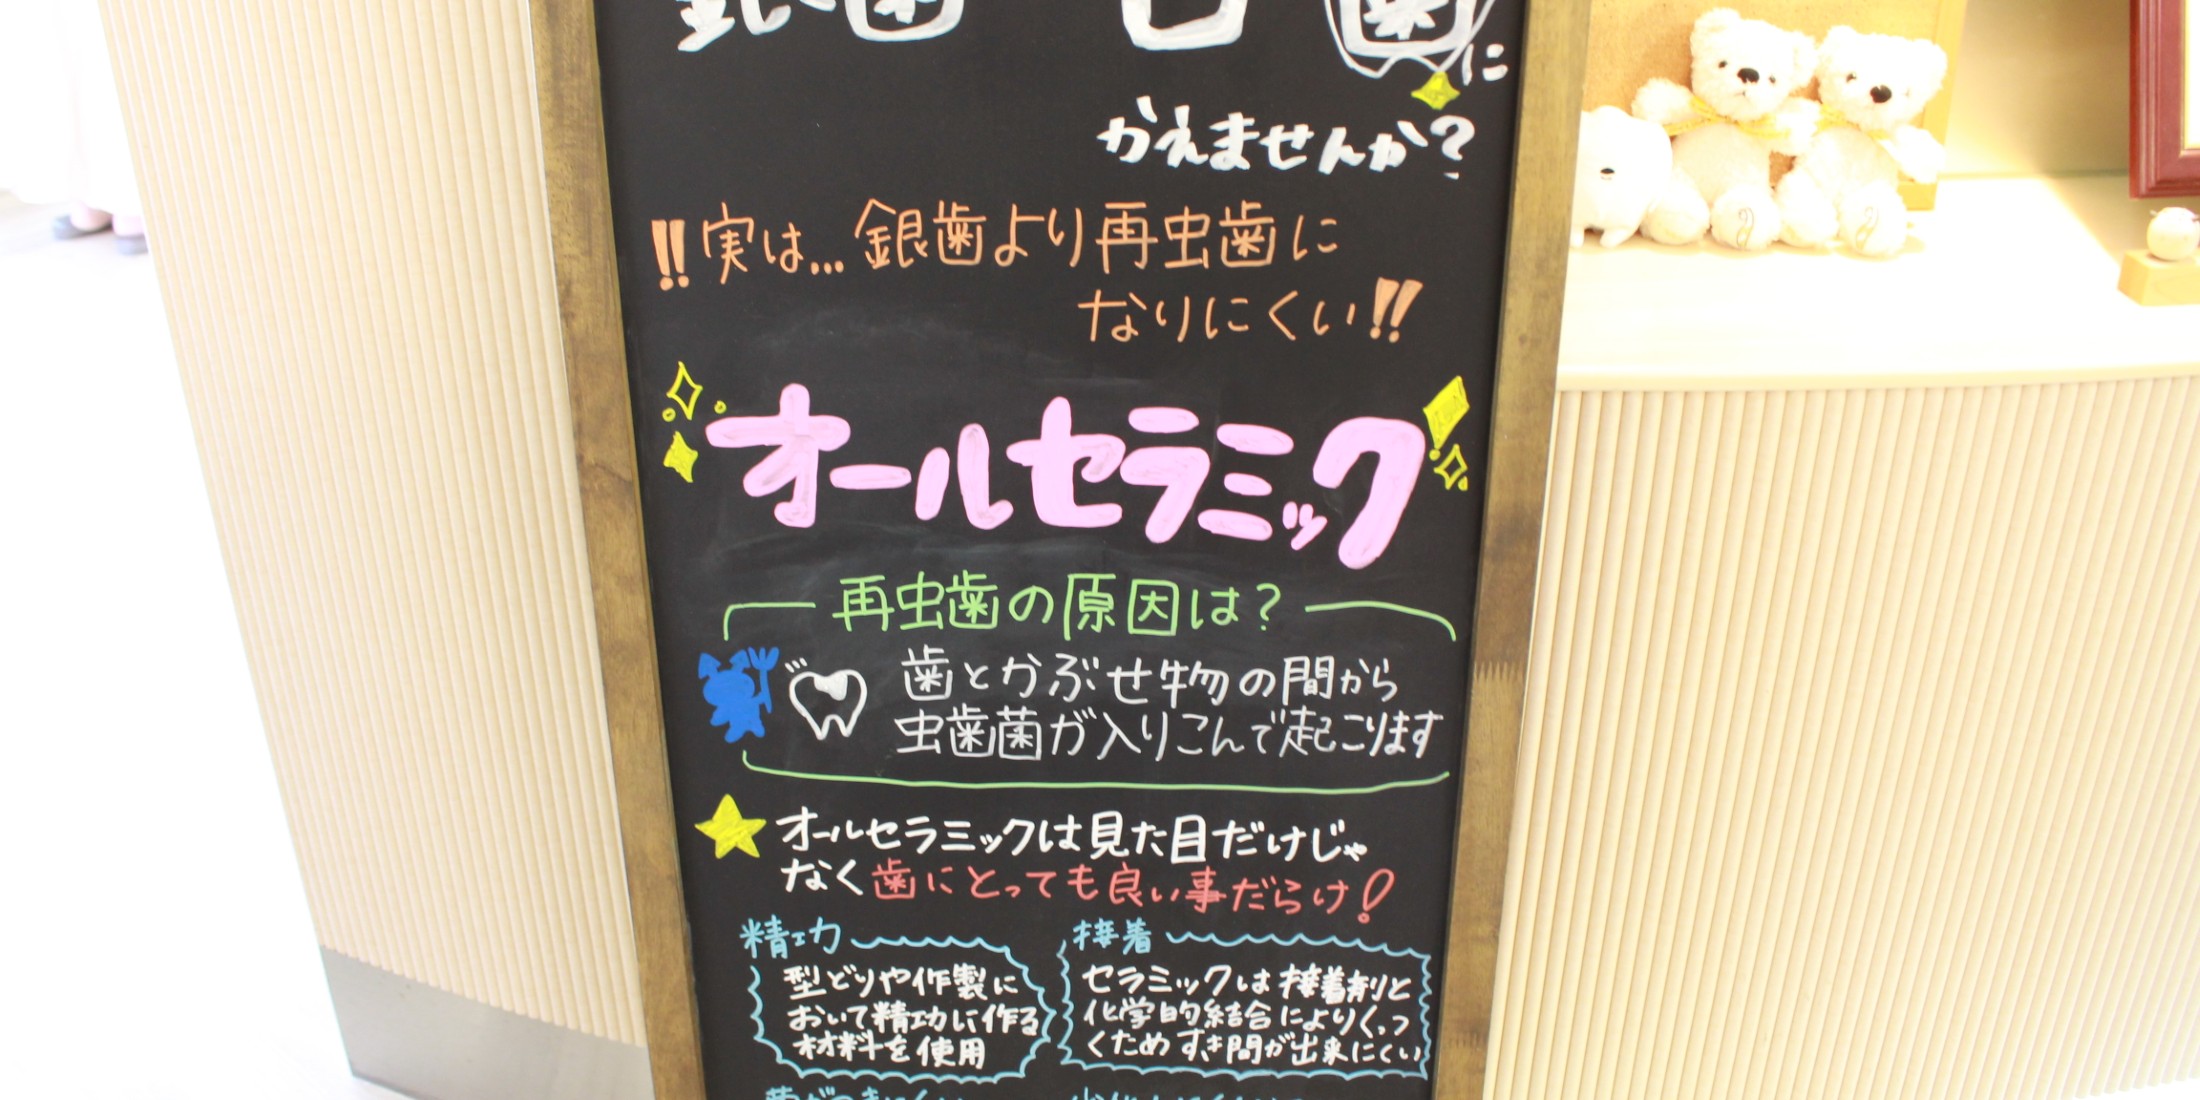 銀歯 白歯に
かえませんか?
!!実は...銀歯より再虫歯に
なりにくい!!
オールセラミック
再虫歯の原因は?
歯とかぶせ物の間から
虫歯菌が入りこんで起こります
オールセラミックは見た目だけじゃ
なく歯にとっても良い事だらけ!
精功
型どりや作製に
おいて精功に作る
材料を使用
接着
セラミックは接着剤と
化学的結合によりくっ
くためすき間が出来にくい